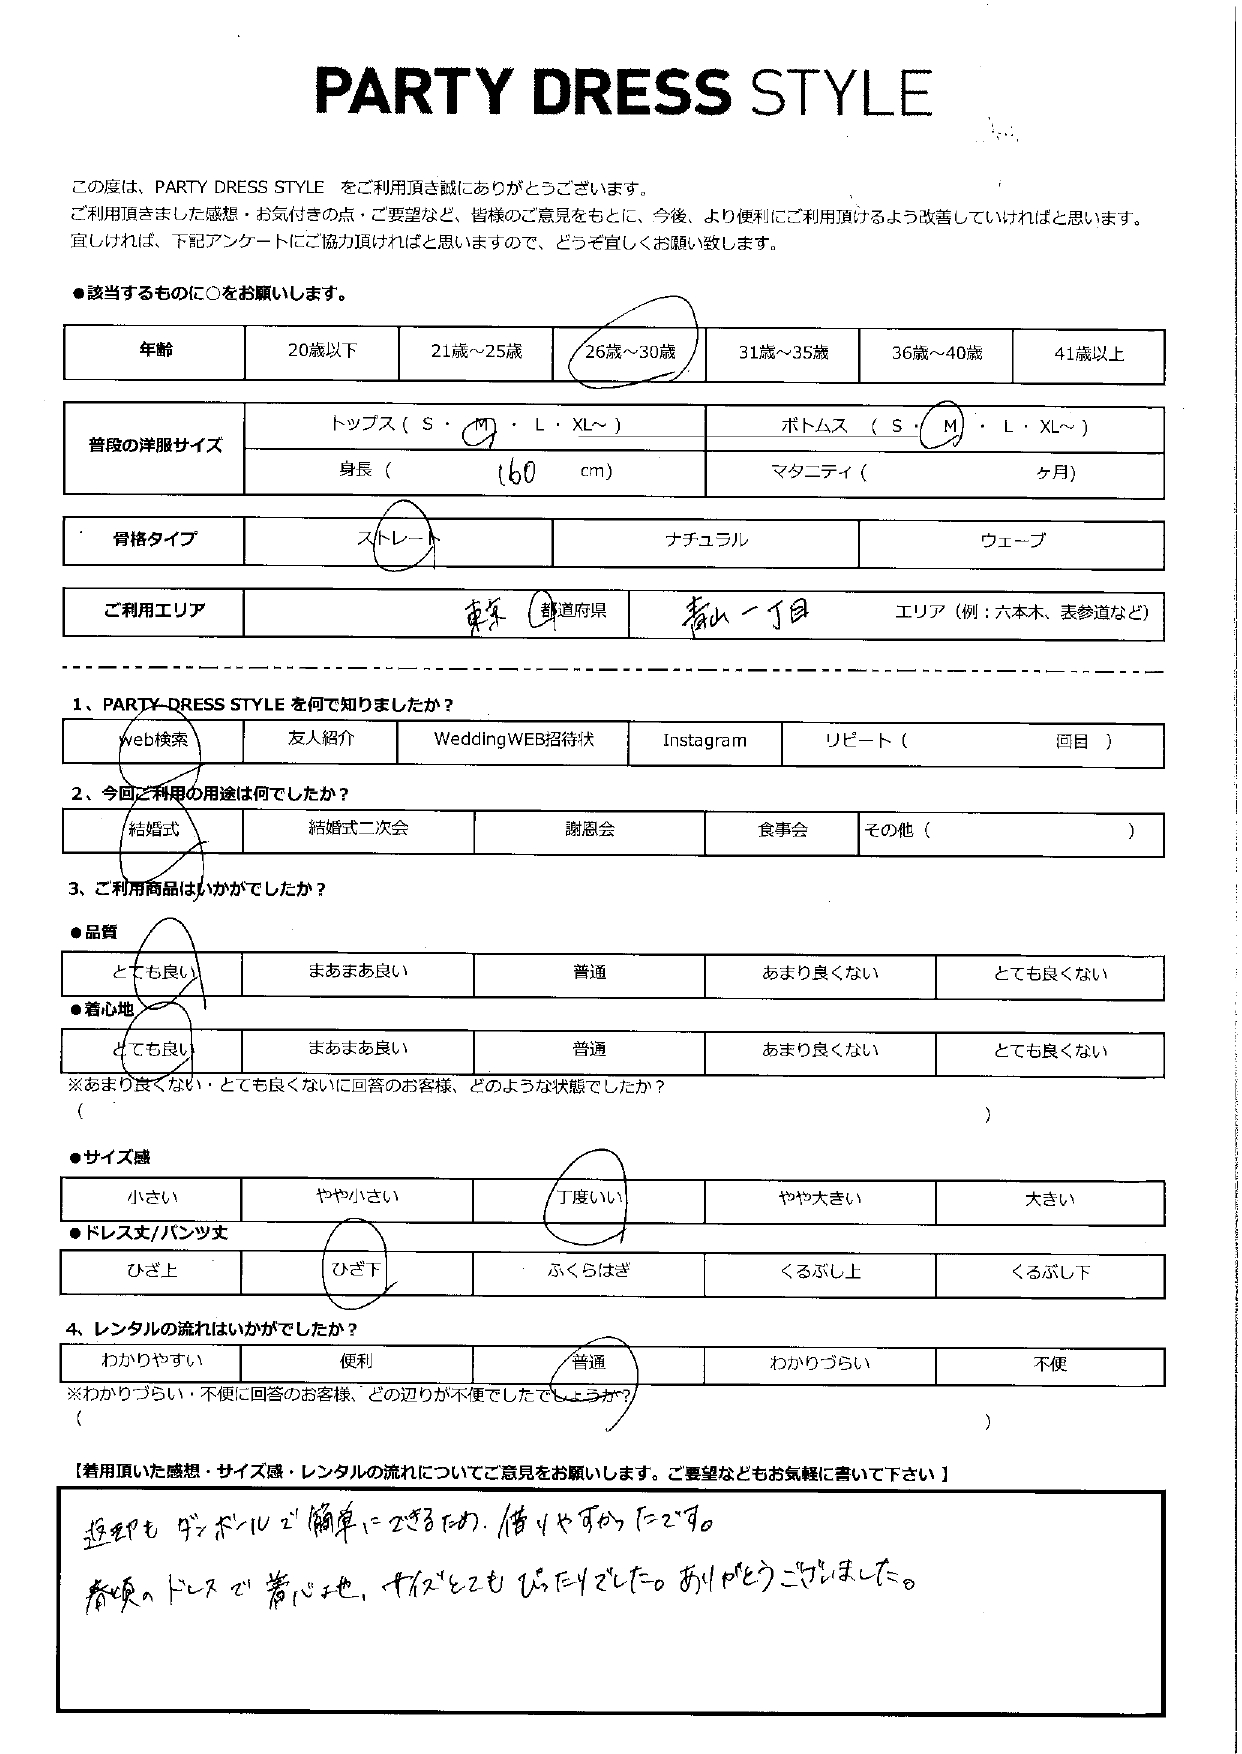 PARTY DRESS STYLE
この度は、PARTY DRESS STYLE をご利用頂き誠にありがとうございます。
ご利用頂きました感想・お気付きの点・ご要望など、皆様のご意見をもとに、今後、より便利にご利用頂けるよう改善していければと思います。
宜しければ、下記アンケートにご協力頂ければと思いますので、どうぞ宜しくお願い致します。
●該当するものに○をお願いします。
年齢 20歳以下 21歳～25歳 26歳～30歳 31歳～35歳 36歳～40歳 41歳以上
普段の洋服サイズ
トップス ( S ・ M ・ L ・ XL～ ) ボトムス ( S ・ M ・ L ・ XL～ )
身長 ( 160 cm) マタニティ ( ヶ月)
骨格タイプ ストレート ナチュラル ウェーブ
ご利用エリア 東京 都道府県 青山一丁目 エリア（例：六本木、表参道など）
1、PARTY DRESS STYLE を何で知りましたか？
web検索 友人紹介 WeddingWEB招待状 Instagram リピート ( 回目 )
2、今回ご利用の用途は何でしたか？
結婚式 結婚式二次会 謝恩会 食事会 その他 ( )
3、ご利用商品はいかがでしたか？
●品質
とても良い まあまあ良い 普通 あまり良くない とても良くない
●着心地
とても良い まあまあ良い 普通 あまり良くない とても良くない
※あまり良くない・とても良くないに回答のお客様、どのような状態でしたか？
( )
●サイズ感
小さい やや小さい 丁度いい やや大きい 大きい
●ドレス丈/パンツ丈
ひざ上 ひざ下 ふくらはぎ くるぶし上 くるぶし下
4、レンタルの流れはいかがでしたか？
わかりやすい 便利 普通 わかりづらい 不便
※わかりづらい・不便に回答のお客様、どの辺りが不便でしたでしょうか？
( )
【着用頂いた感想・サイズ感・レンタルの流れについてご意見をお願いします。ご要望などもお気軽に書いて下さい 】
返却も ダンボールで簡単にできるため、借りやすかったです。
春頃のドレスで着心地、サイズとてもぴったりでした。ありがとうございました。